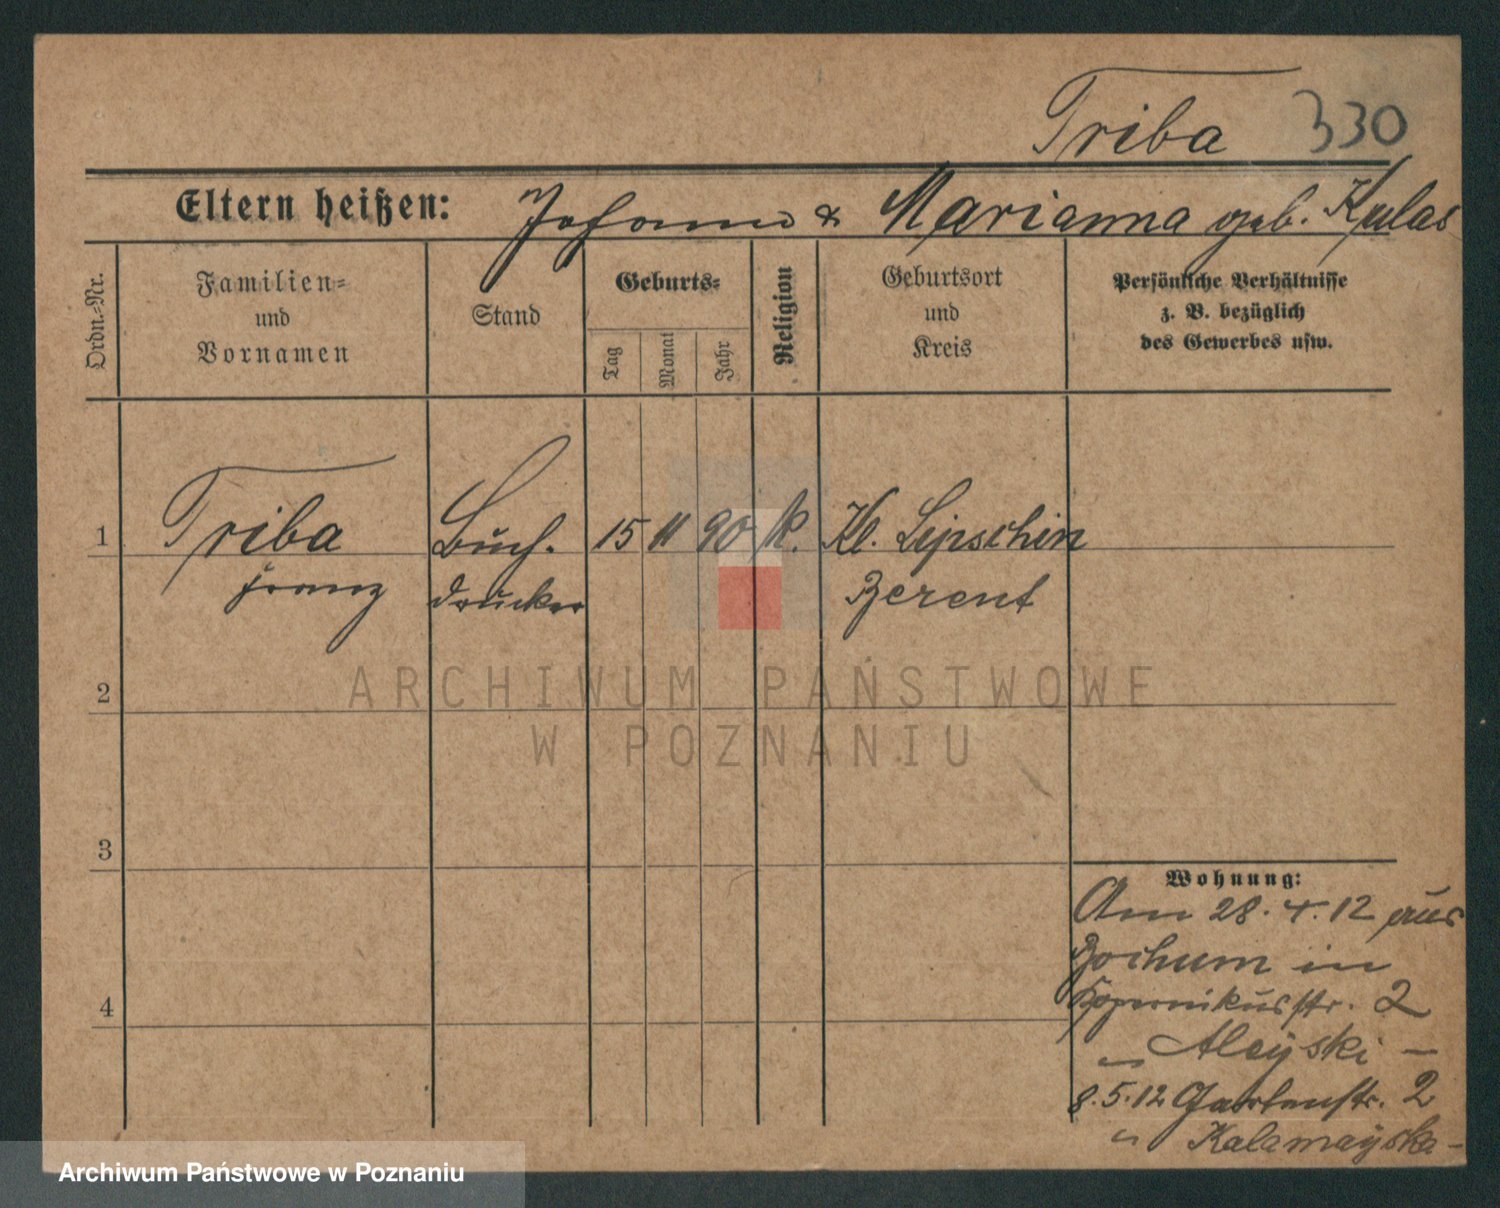 Triba 330
Eltern heißen: Johann & Marianna geb. Kulas
Ordn.-Nr.
Familien- und Vornamen
Stand
Geburts-
Tag
Monat
Jahr
Religion
Geburtsort und Kreis
Persönliche Verhältnisse
z. B. bezüglich
des Gewerbes usw.
1 Triba Buch- 15 11 90 k. Kl. Lipschin
Franz drucker Berent
2
3
4
Wohnung:
Am 28.4.12 aus
Bochum in
Kopernikusstr. 2
8.5.12 Gartenstr. 2
ARCHIWUM PAŃSTWOWE
W POZNANIU
Archiwum Państwowe w Poznaniu